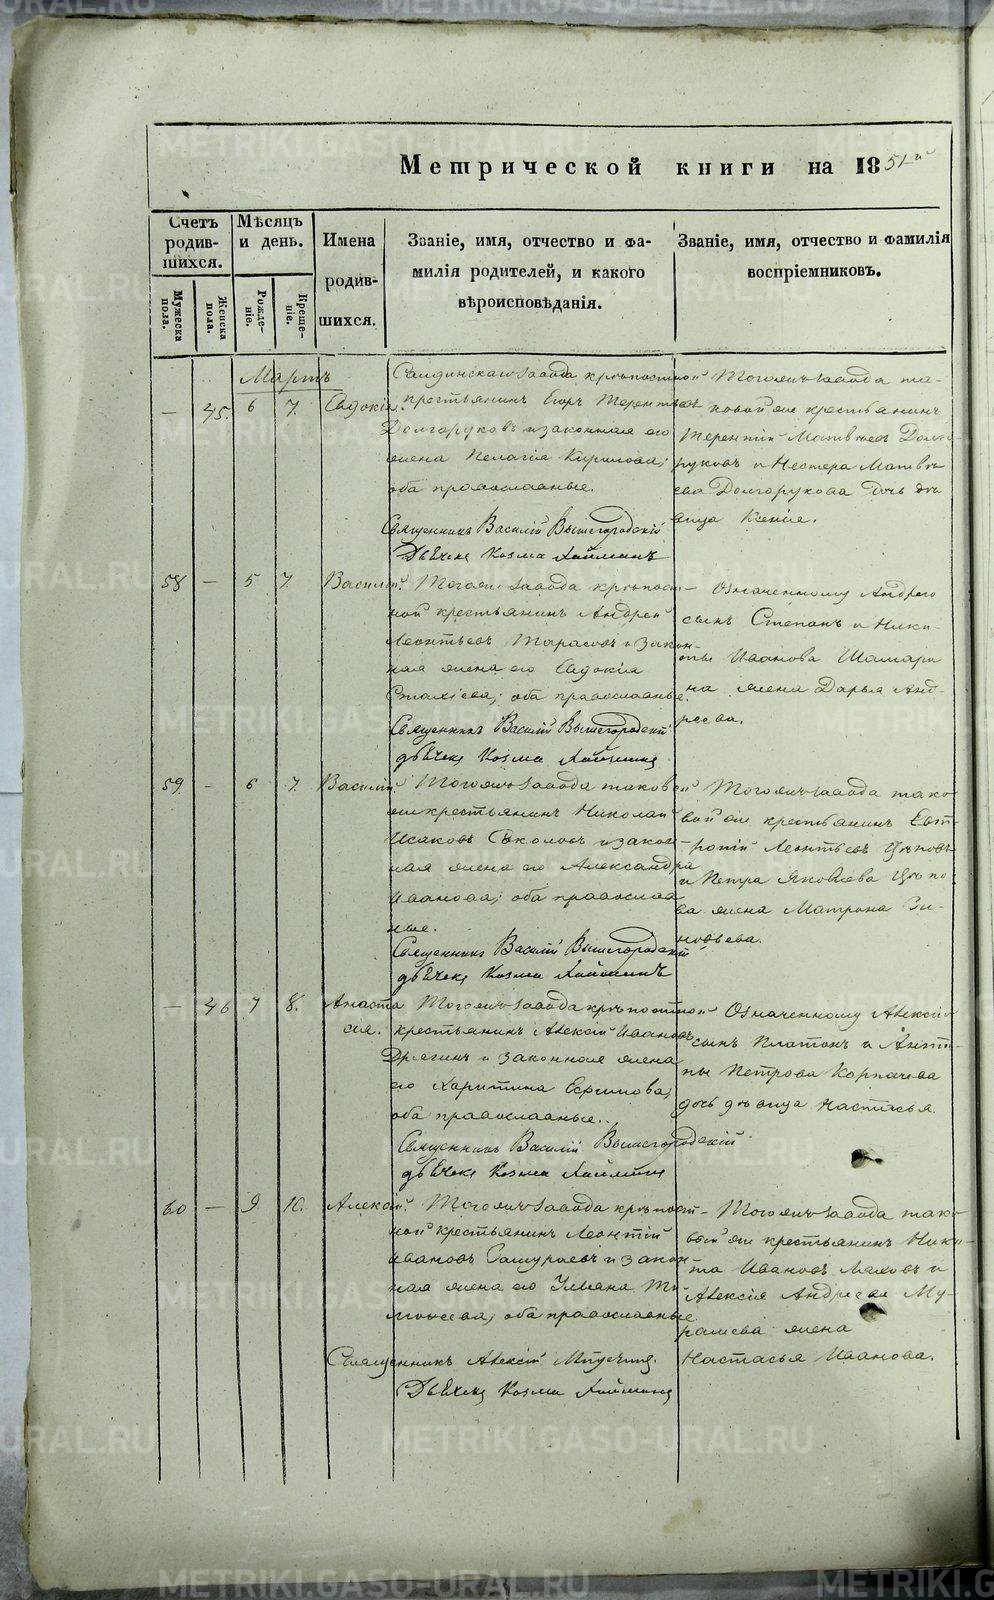 Метрической книги на 1851й
Счетъ родившихся.
Мѣсяцъ и день.
Имена родившихся.
Званіе, имя, отчество и фамилія родителей, и какого вѣроисповѣданія.
Званіе, имя, отчество и фамилія воспріемниковъ.
Мужеска пола.
Женска пола.
Рожденіе.
Крещеніе.
Мартъ
— 45 6 7. Евдокія.
Салдинскаго завода крѣпостной
крестьянинъ Егоръ Терентьевъ
Долгоруковъ и законная его
жена Пелагія Кирилова;
оба православные.
Священникъ Василій Вышегородскій
Дьячекъ Козма
Тогожъ завода та-
ковой же крестьянинъ
Терентій Матвѣевъ Долго-
руковъ и Нестера Матвѣ-
ева Долгорукова дочь дѣ-
вица Ксенія.
58 — 5 7 Василій.
Тогожъ завода крѣпост-
ной крестьянинъ Андрей
Леонтьевъ Тарасовъ и закон-
ная жена его Евдокія
оба православные.
Священникъ Василій Вышегородскій
дьячекъ Козма
Означенному Андрею
сынъ Степанъ и Ники-
ты Иванова Шамари-
на жена Дарья Анд-
реева.
59. — 6 7. Василій.
Тогожъ завода таковой
же крестьянинъ Николай
Исаковъ Соколовъ и закон-
ная жена его Александра
Иванова; оба православ-
ные.
Священникъ Василій Вышегородскій
дьячекъ Козма
Тогожъ завода тако-
вой же крестьянинъ Евт-
ропій Леонтьевъ Цѣповъ
и Петра Яковлева Цѣпо-
ва жена Матрона Зи-
новьева.
— 46 7 8. Анаста-
сія.
Тогожъ завода крѣпостной
крестьянинъ Алексій Ивановъ
Дрягинъ и законная жена
его Харитина Ефимова;
оба православные.
Священникъ Василій Вышегородскій
дьячекъ Козма
Означенному Алексію
сынъ Платонъ и Анти-
пы Петрова Корпачева
дочь дѣвица Настасья.
60 — 9 10. Алексій.
Тогожъ завода крѣпост-
ной крестьянинъ Леонтій
Ивановъ и закон-
ная жена его Ульяна Ти-
моѳеева; оба православные
Священникъ Алексій
Дьячекъ Козма
Тогожъ завода тако-
вой же крестьянинъ Ники-
та Ивановъ Маховъ и
Алексія Андреева Му-
рашева жена
Настасья Иванова.
METRIKI.GASO-URAL.RU